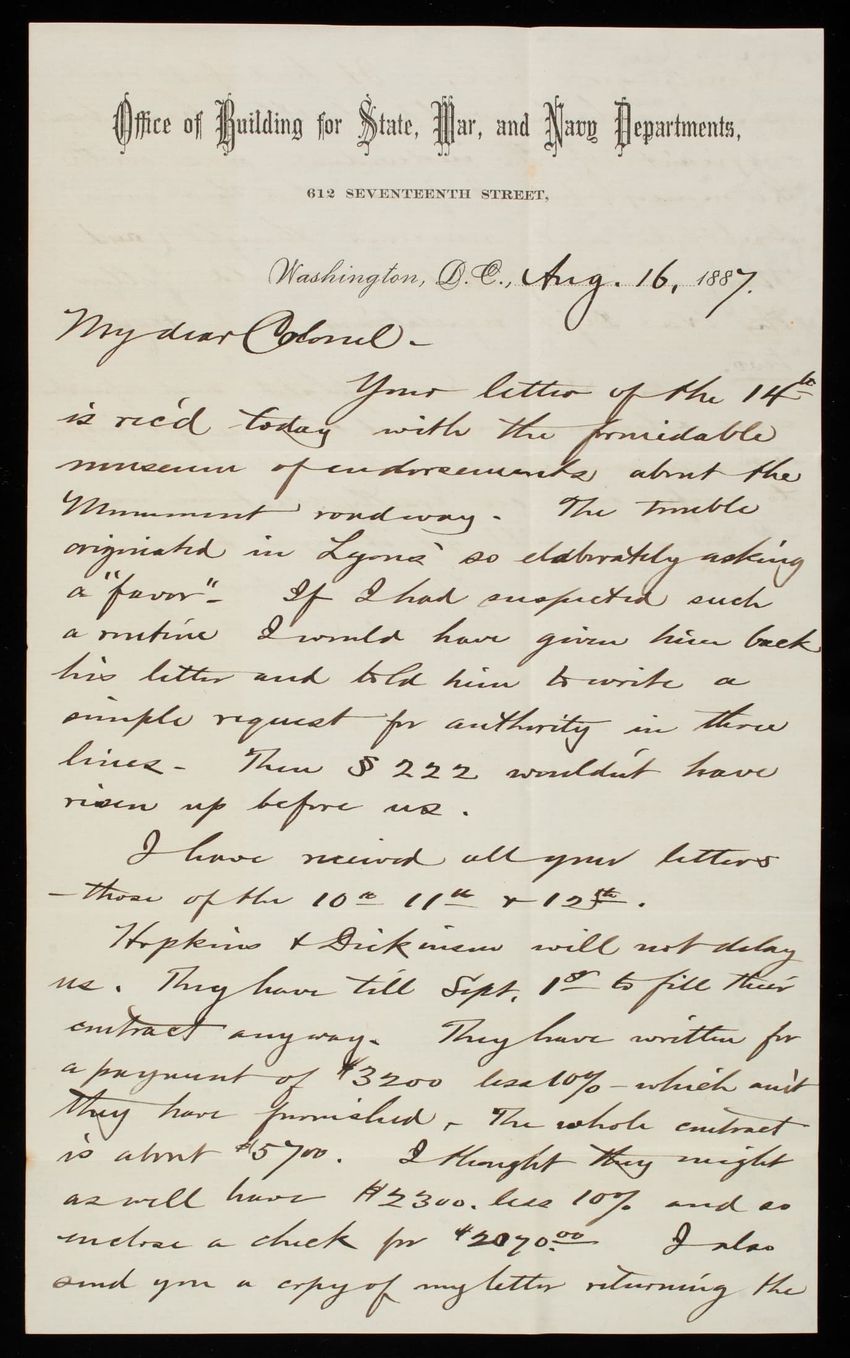 Office of Building for State, War, and Navy Departments,
612 SEVENTEENTH STREET,
Washington, D.C., Aug. 16, 1887.
My dear Colonel -
Your letter of the 14th
is rec'd today with the formidable
museum of endorsements about the
Monument roadway. The trouble
originated in Lyons' so elaborately asking
a "favor" - If I had suspected such
a routine I would have given him back
his letter and told him to write a
simple request for authority in three
lines - Then § 222 wouldn't have
risen up before us.
I have received all your letters
- those of the 10th 11th & 12th.
Hopkins & Dickinson will not delay
us. They have till Sept. 1st to fill their
contract anyway. They have written for
a payment of $3200 less 10% - which am't
they have furnished. - The whole contract
is about $5700. I thought they might
as well have $2300. less 10% and so
enclose a check for $2070.00 I also
send you a copy of my letter returning the